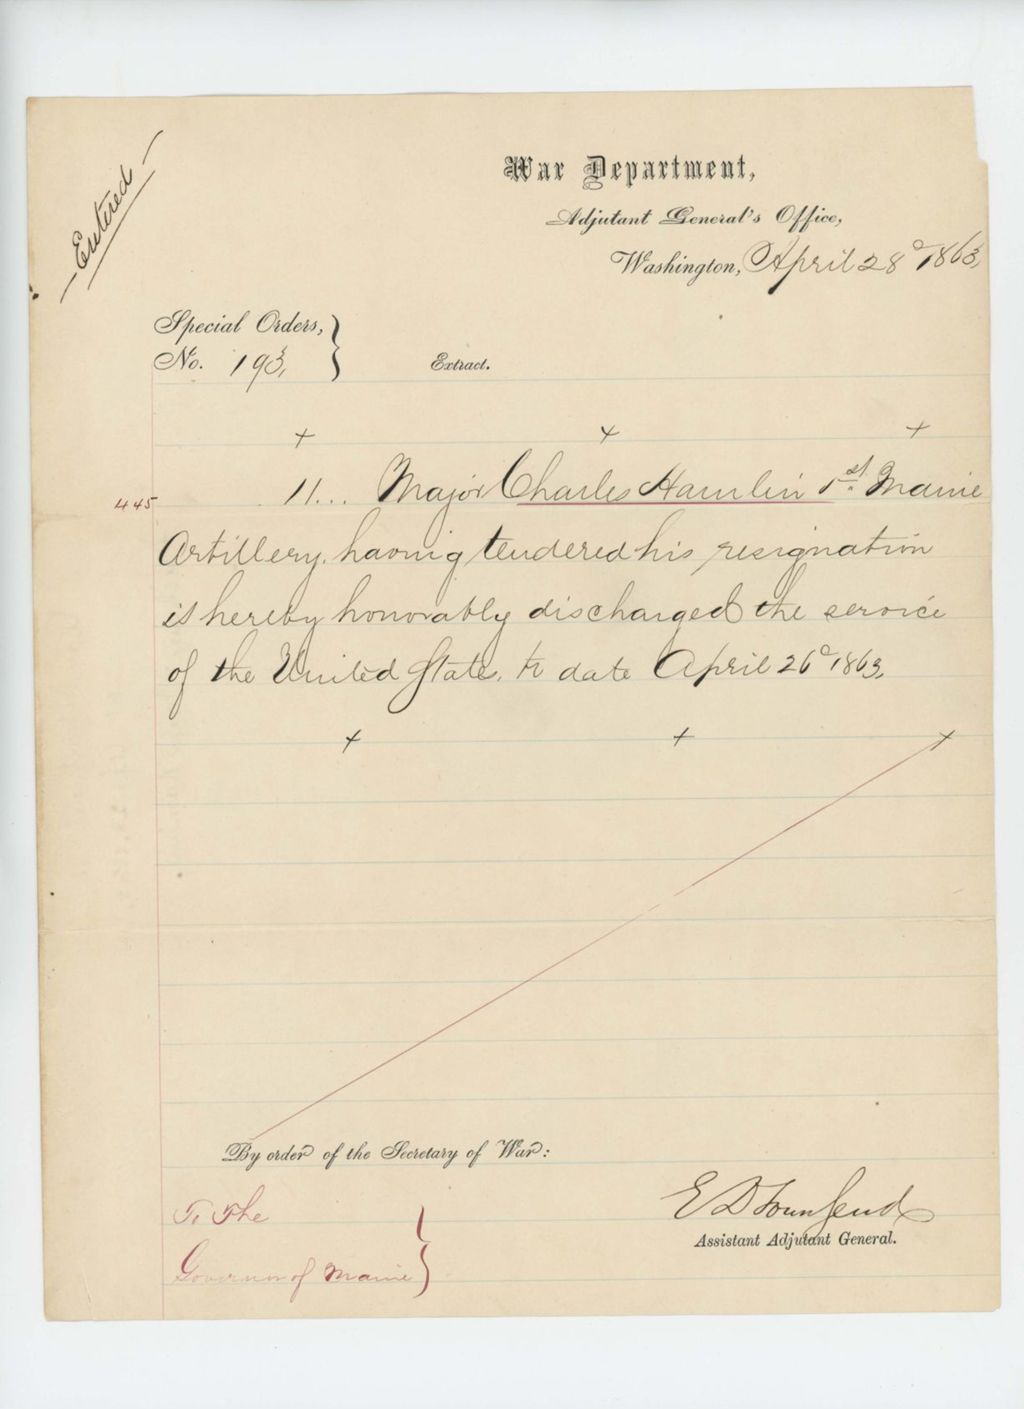 Entered
War Department,
Adjutant General's Office,
Washington, April 28d 1863,
Special Orders,
No. 193,
Extract.
+ + +
445
11... Major Charles Hamlin 1st. Maine
Artillery, having tendered his resignation
is hereby honorably discharged the service
of the United States, to date April 26d 1863,
+ + +
By order of the Secretary of War:
To The
Governor of Maine
E D Townsend
Assistant Adjutant General.